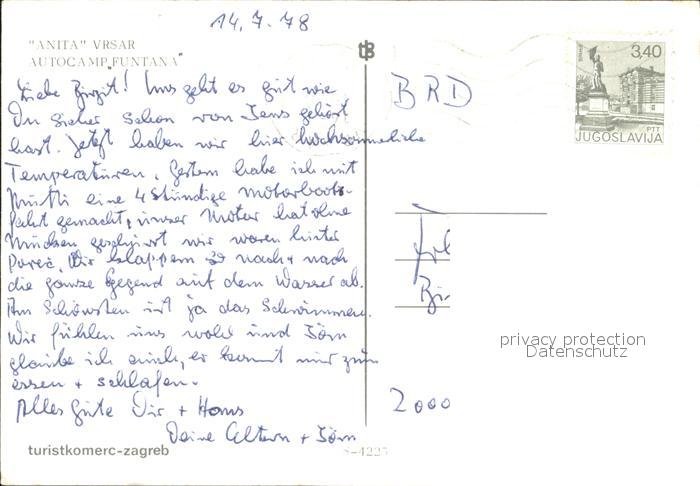 14.7.78
"ANITA" VRSAR
AUTOCAMP"FUNTANA"
Liebe Birgit! Uns geht es gut wie
Du sicher schon von Jens gehört
hast. Jetzt haben wir hier hochsommerliche
Temperaturen. Gestern habe ich mit
Mutti eine 4 stündige Motorboots-
fahrt gemacht, unser Motor hat ohne
Mucken geschnurrt wir waren hinter
Poreč. Wir klappern so nach + nach
die ganze Gegend auf dem Wasser ab.
Am Schönsten ist ja das Schwimmen.
Wir fühlen uns wohl und Jörn
glaube ich auch, er kommt nur zum
essen + schlafen.
Alles Gute Dir + Hans
Deine Eltern + Jörn
turistkomerc-zagreb
S-4225
BRD
Bi
2000
3,40
PTT
JUGOSLAVIJA
privacy protection
Datenschutz